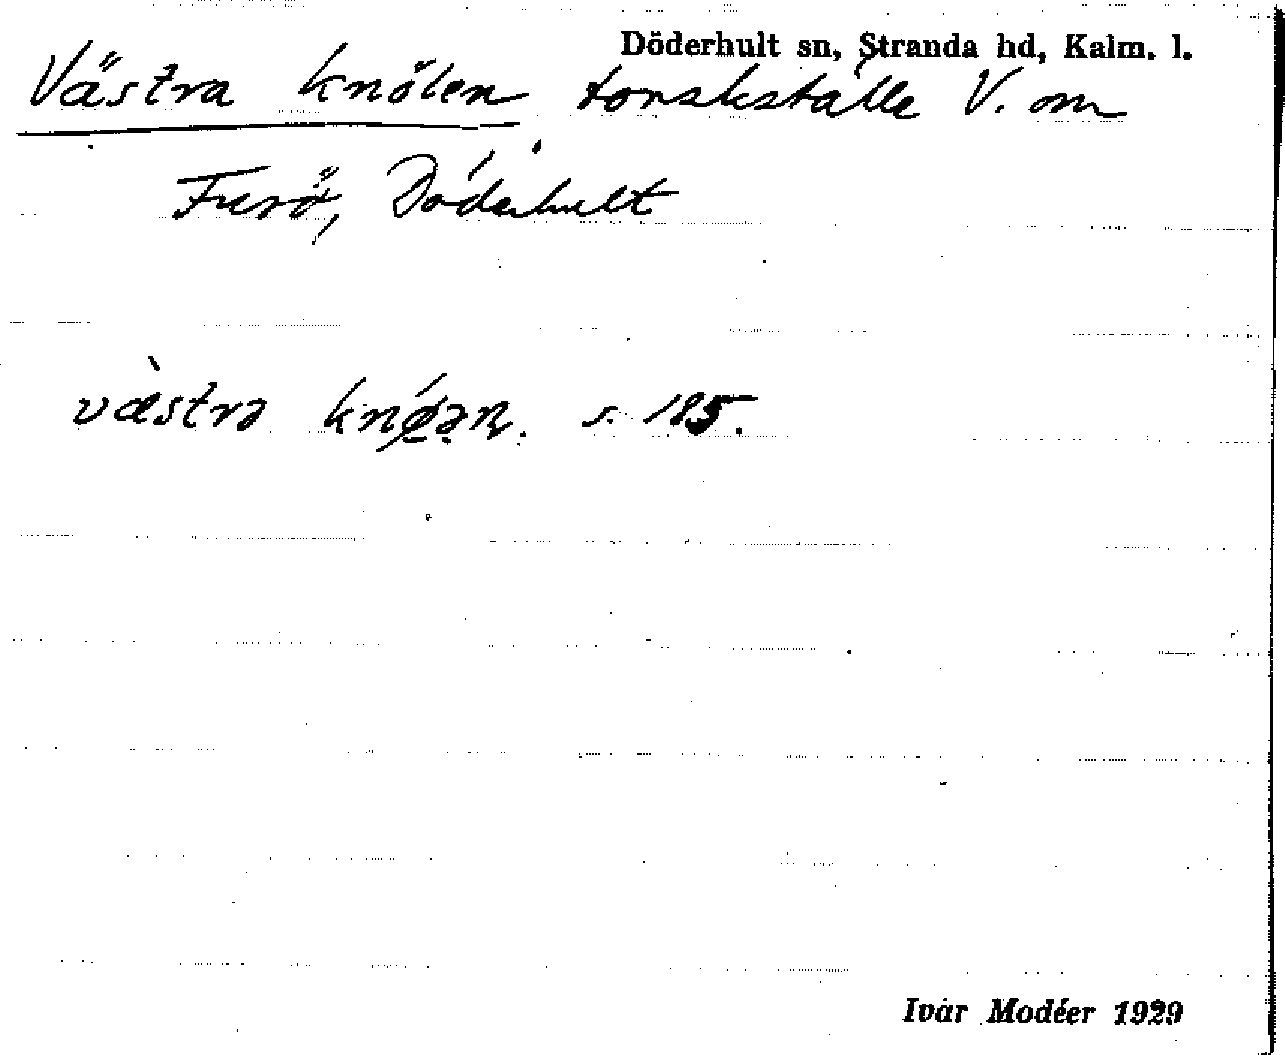 Döderhult sn, Stranda hd, Kalm. l.
Västra knölen torskställe V. om
Furö, Döderhult
västrə knǿəɳ. s. 185.
Ivar Modéer 1929